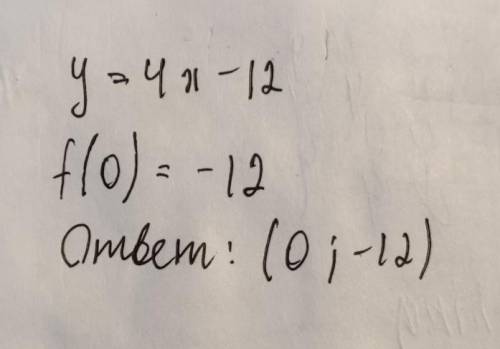 y = 4x - 12
f(0) = -12
Ответ: (0; -12)